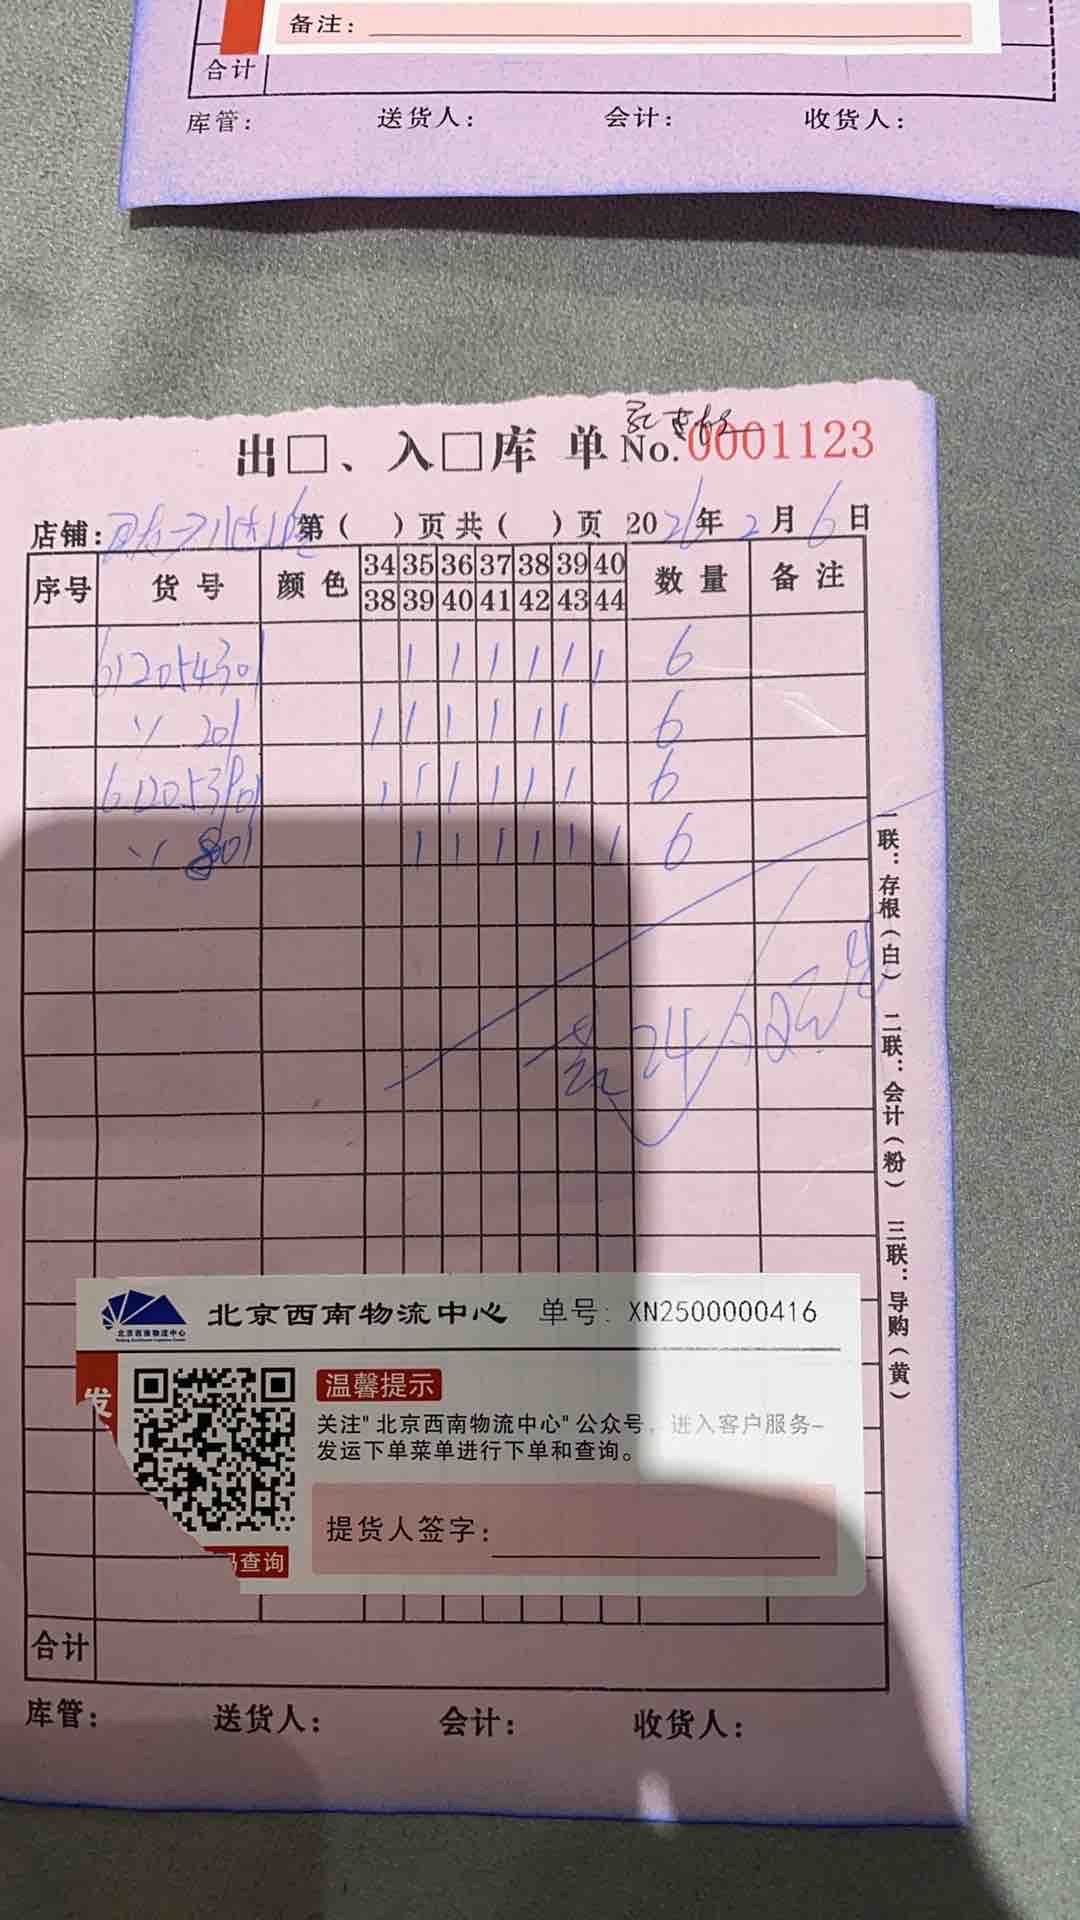 备注：
合计
库管： 送货人： 会计： 收货人：
出□、入□库 单 No. 0001123
店铺： 第（ ）页共（ ）页 2026年2月6日
序号 货号 颜色 34 35 36 37 38 39 40 数量 备注
38 39 40 41 42 43 44
612054301 1 1 1 1 1 1 6
〃 201 1 1 1 1 1 1 6
612053901 1 1 1 1 1 1 6
〃 801 1 1 1 1 1 1 6
24
一联：存根（白） 二联：会计（粉） 三联：导购（黄）
北京西南物流中心
北京西南物流中心 单号: XN2500000416
发
温馨提示
关注"北京西南物流中心"公众号，进入客户服务-
发运下单菜单进行下单和查询。
提货人签字：
码查询
合计
库管： 送货人： 会计： 收货人：